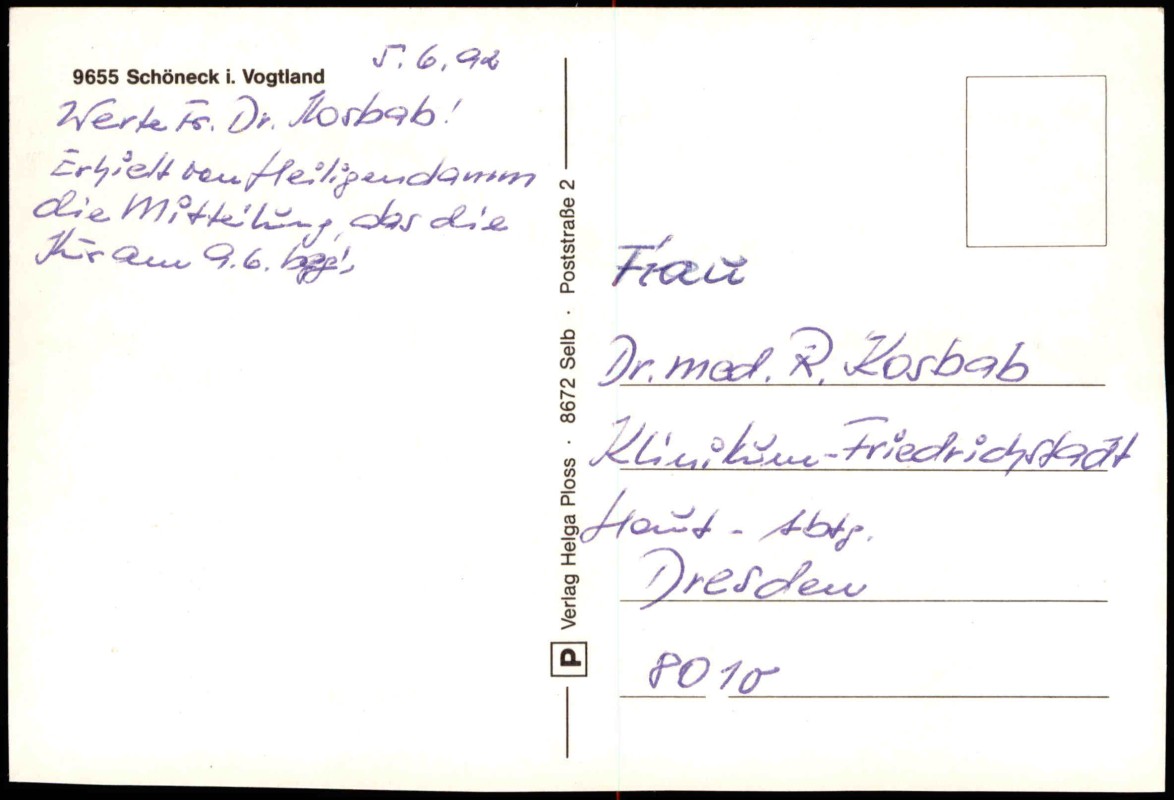 5.6.92
9655 Schöneck i. Vogtland
Werte Fr. Dr. Kosbab!
Erhielt von Heiligendamm
die Mitteilung, das die
Kur am 9.6.
Verlag Helga Ploss · 8672 Selb · Poststraße 2
P
Frau
Dr. med. R. Kosbab
Klinikum-Friedrichstadt
Haut - Abtg.
Dresden
8010